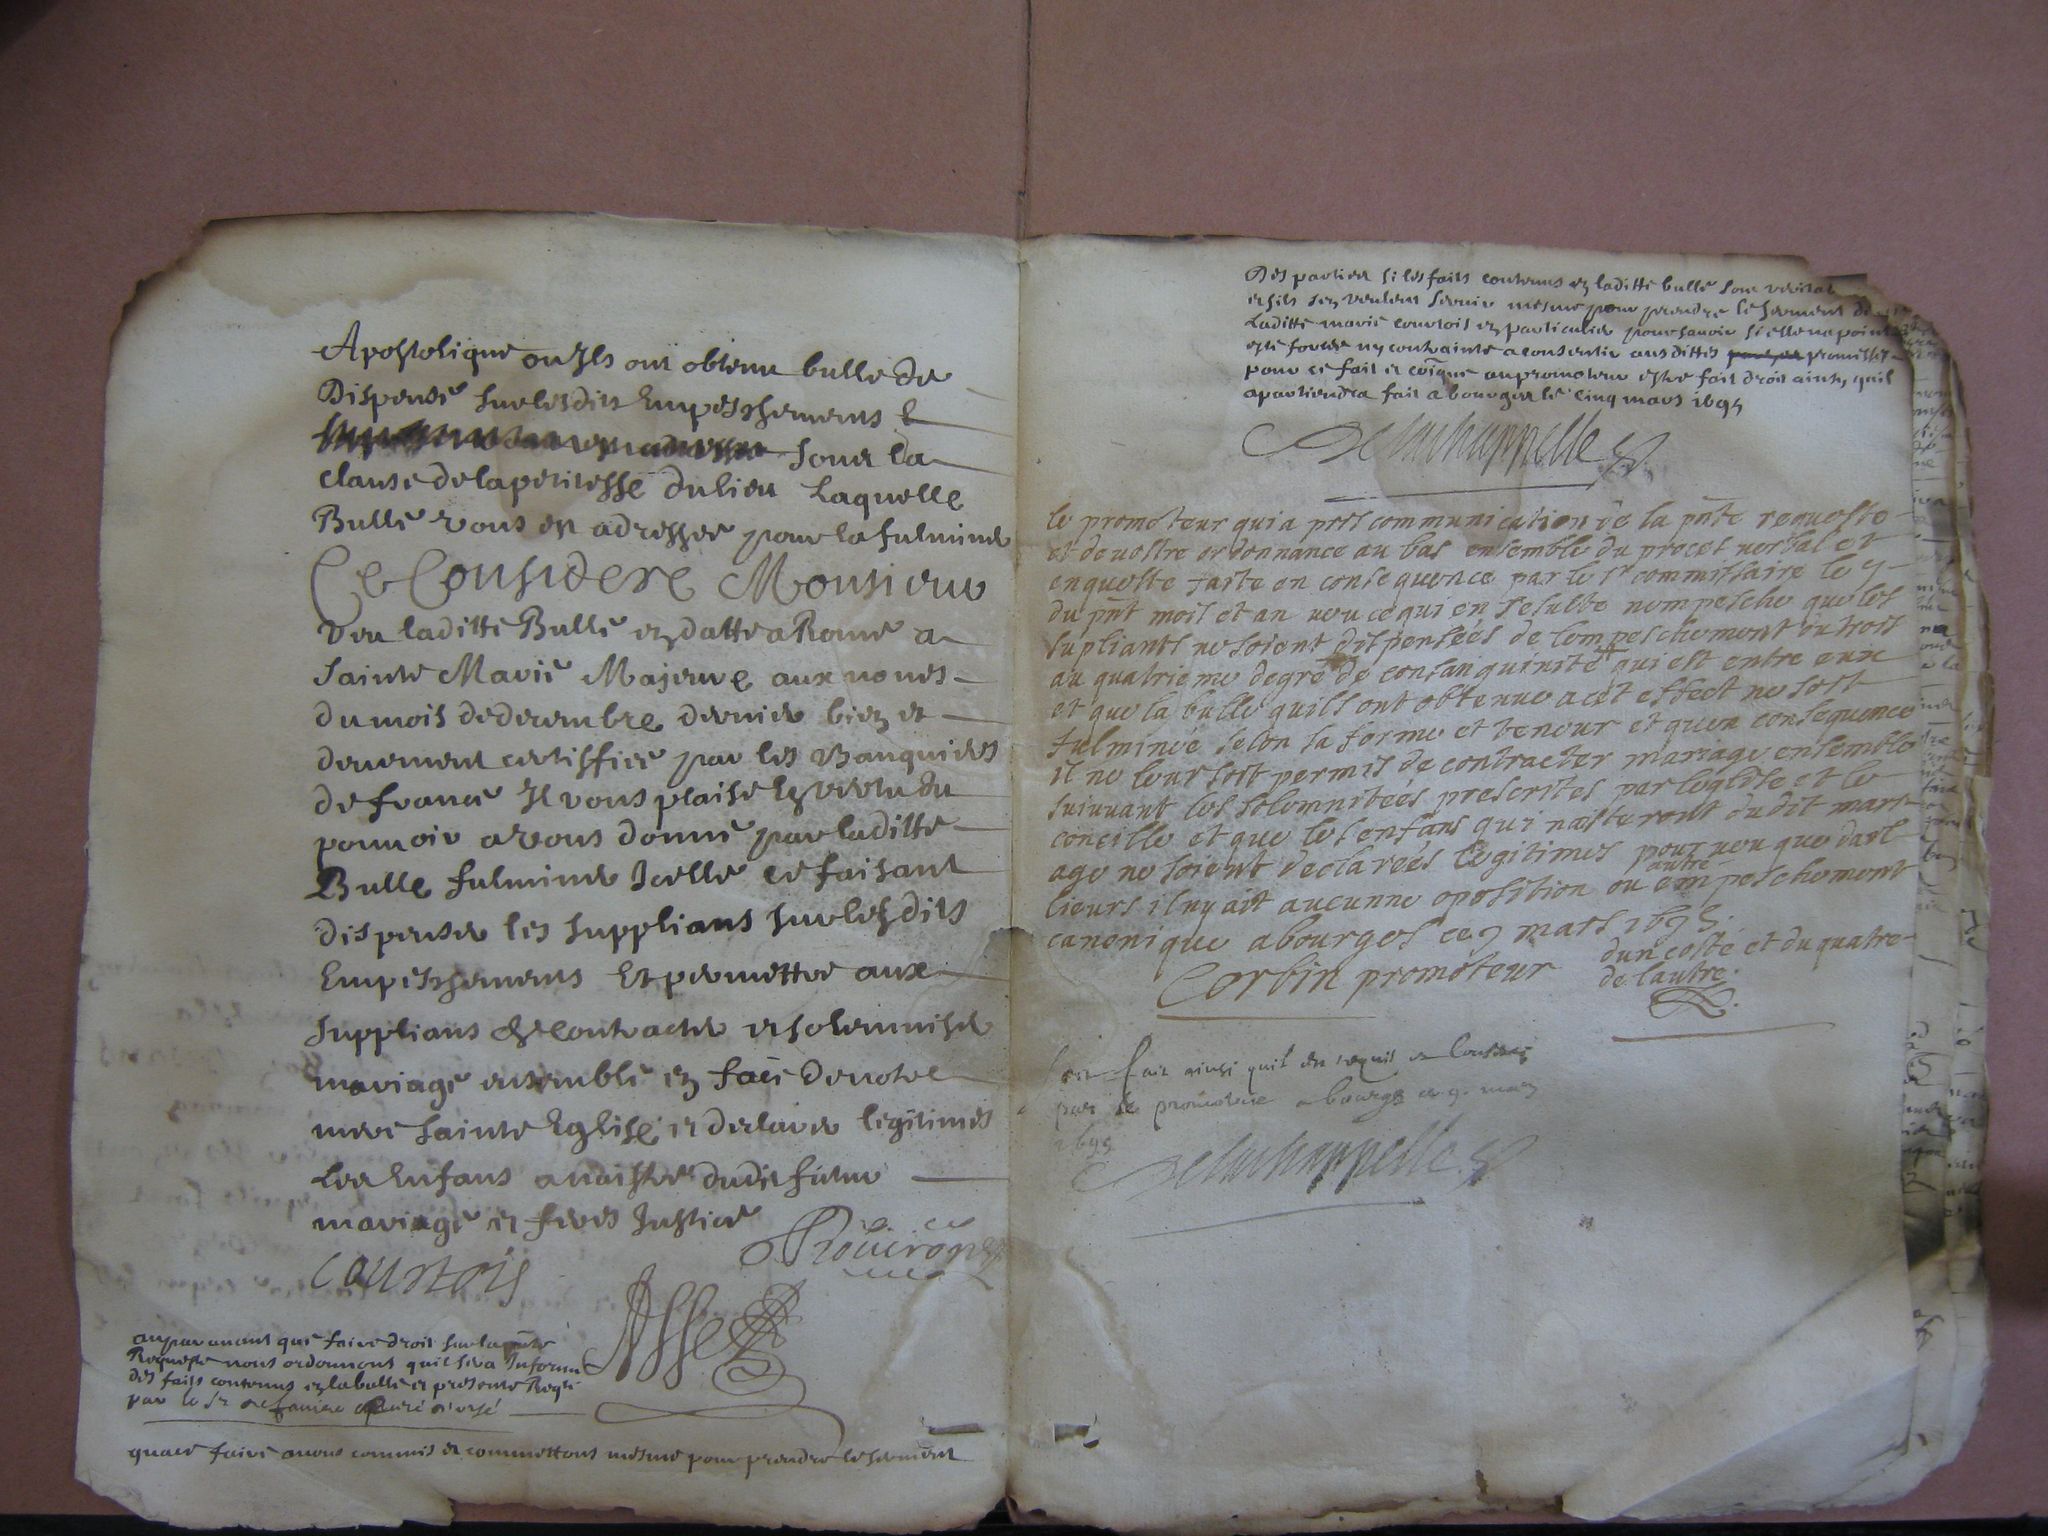 Apostolique ou Ils ont obtenu bulle de
Dispense sur lesdits Empeschemens &
sous la
clause de la petitesse du lieu Laquelle
Bulle vous est adressée pour la fulminer
Ce Consideré Monsieur
Veu laditte Bulle en datte a Rome a
Sainte Marie Majeure aux nones
du mois de decembre dernier bien et
deuement certiffiée par les Banquiers
de france Il vous plaise En vertu du
pouvoir a vous donné par laditte
Bulle fulminer Icelle ce faisant
dispenser les supplians sur lesdits
Empeschemens Et permettre aux
supplians de contracter et solemniser
mariage ensemble en face de notre
mere sainte Eglise et declarer legitimes
Les Enfans a naistre dudit futur
mariage et feres Justice
Courtois
auparavant que faire droit sur la pnte
Requeste nous ordonnons quil sera Informé
des faits contenus en la bulle et presente Reqte
par le sr curé
quace faire avons commis et commettons mesme pour prendre le serment
Des parties si les faits contenus en laditte bulle sont
et sils sen veulent servir mesme pour prendre le serment de
Laditte marie courtois en particulier pour savoir si elle na point
esté forcée ny contrainte a consentir ausdittes promesses
pour ce fait et coiqué au promoteur estre fait droit ainsy quil
apartiendra fait a bourges le cinq mars 1695
Delachappelle
le promoteur qui a pris communication de la pnte requeste
et de vostre ordonnance au bas ensemble du procet verbal et
enqueste faite en consequence par le sr commissaire le 7
du pnt mois et an veu ce qui en resulte nempesche que les
supliants ne soient dispensées de lempeschement du trois
au quatrieme degré de consanquinité qui est entre eux
et que la bulle quils ont obtenue a cet effect ne soit
fulminée selon sa forme et teneur et quen consequence
il ne leur soit permis de contracter mariage ensemble
suivant les solemnitées prescrites par léglise et le
concille et que les enfans qui naisteront dudit mari
age ne soient declarées legitimes pourveu que dail
lieurs il ny ait aucunne oposition ou autre empeschement
canonique a bourges ce 9 mars 1695.
Corbin promoteur
dun costé et du quatre
de lautre.
soit fait ainsi quil est requis et consenti
par le promoteur a bourges ce 9. mars
1695
Delachappelle